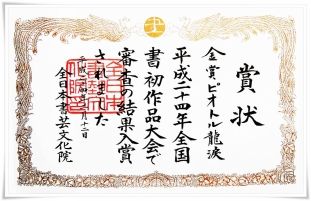 賞状
金賞 ピオトル龍波
平成二十四年全国
書初作品大会で
審査の結果入賞
されました
全日本書芸文化院